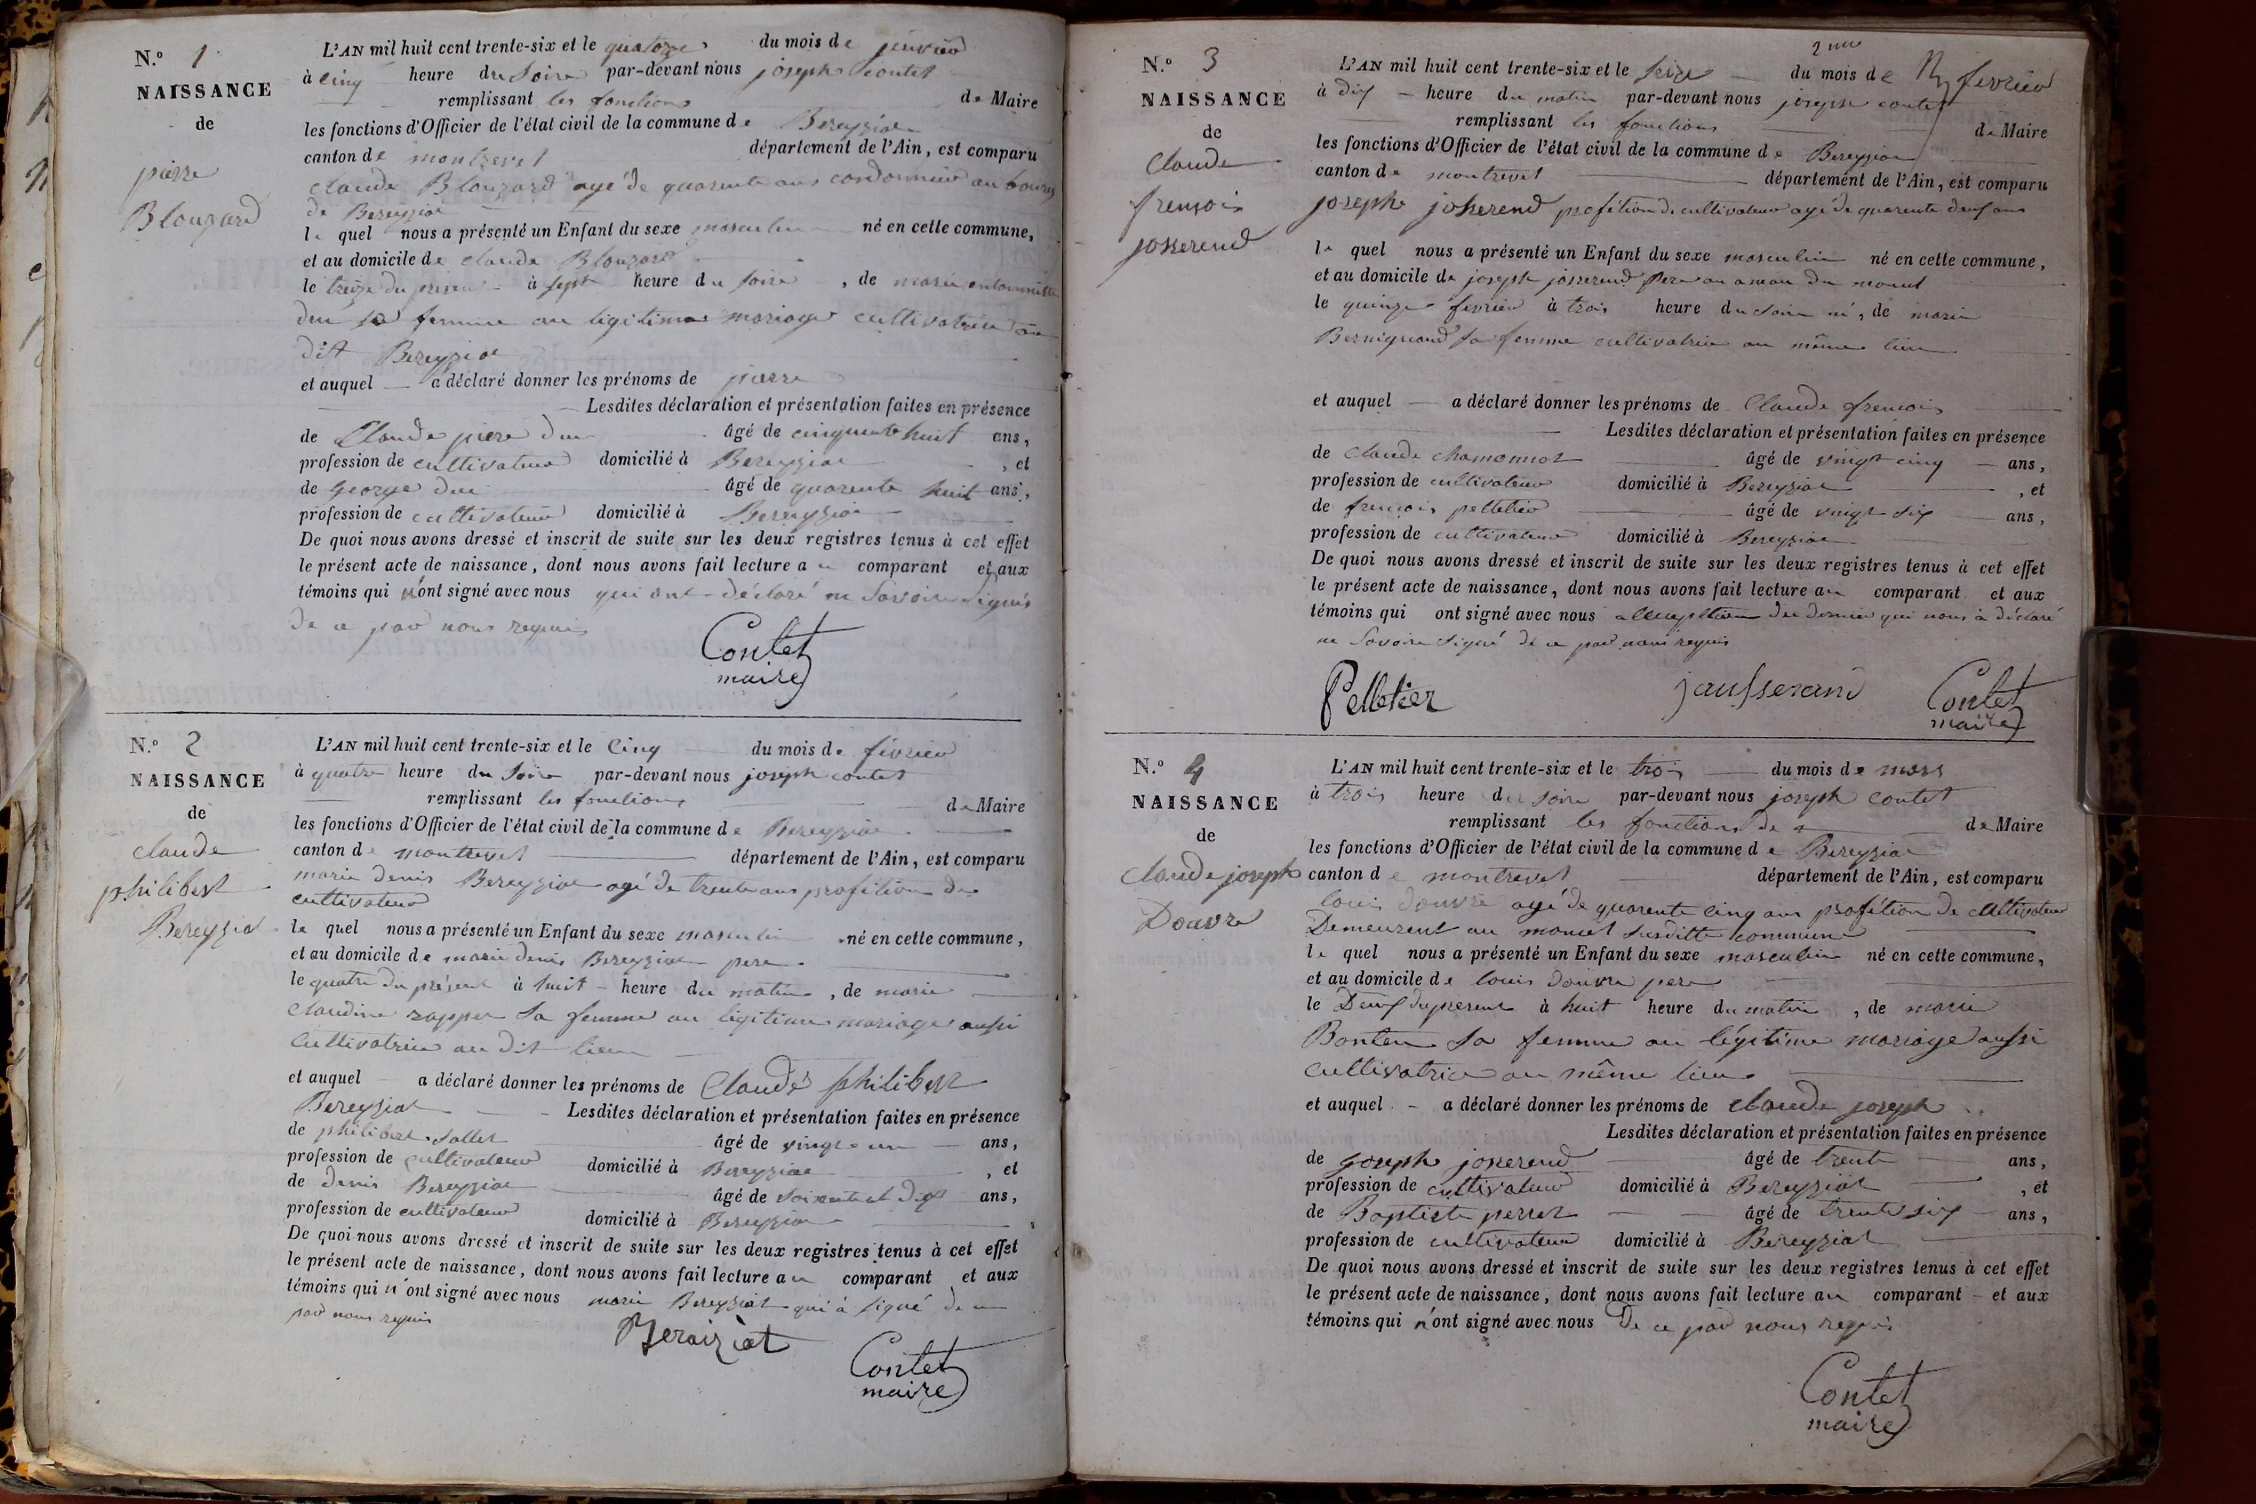 N.o 1
NAISSANCE
de
pierre
Blouzard
L'AN mil huit cent trente-six et le quatorze du mois de jenvier
à cinq heure du Soire par-devant nous joseph contet
remplissant les fonctions de Maire
les fonctions d'Officier de l'état civil de la commune de Bereyziat
canton de montrevel département de l'Ain, est comparu
claude Blouzard agé de quarente ans cordonnier au bourg
de Bereyziat
le quel nous a présenté un Enfant du sexe masculin né en cette commune,
et au domicile de claude Blouzard
le treize du présent à sept heure du soire, de marie
duc sa femme au légitime mariage cultivatrice au
dit Bereyziat
et auquel a déclaré donner les prénoms de pierre
Lesdites déclaration et présentation faites en présence
de Claude piere duc âgé de cinquente huit ans,
profession de cultivateur domicilié à Bereyziat, et
de George duc âgé de quarente huit ans,
profession de cultivateur domicilié à Bereyziat
De quoi nous avons dressé et inscrit de suite sur les deux registres tenus à cet effet
le présent acte de naissance, dont nous avons fait lecture au comparant et aux
témoins qui n'ont signé avec nous qui ont déclaré ne Savoire Signés
de ce par nous requis
Contet
maire
N.o 2
NAISSANCE
de
claude
philibert
Bereyziat
L'AN mil huit cent trente-six et le Cinq du mois de février
à quatre heure du Soire par-devant nous joseph contet
remplissant les fonctions de Maire
les fonctions d'Officier de l'état civil de la commune de Bereyziat
canton de montrevel département de l'Ain, est comparu
marie denis Bereyziat agé de trente ans profétion de
cultivateur
le quel nous a présenté un Enfant du sexe masculin né en cette commune,
et au domicile de marie denis Bereyziat pere
le quatre du présent à huit heure du matin, de marie
claudine rapper Sa femme au légitime mariage aussi
Cultivatrice au dit lieu
et auquel a déclaré donner les prénoms de Claude philibert
Bereyziat Lesdites déclaration et présentation faites en présence
de philibert Sallet âgé de vingt un ans,
profession de cultivateur domicilié à Bereyziat, et
de denis Bereyziat âgé de Soixente et dix ans,
profession de cultivateur domicilié à Bereyziat
De quoi nous avons dressé et inscrit de suite sur les deux registres tenus à cet effet
le présent acte de naissance, dont nous avons fait lecture au comparant et aux
témoins qui n'ont signé avec nous marie Bereyziat qui à signé de ce
par nous requis
Beraiziat
Contet
maire
N.o 3
NAISSANCE
de
Claude
frençois
josserend
2me
L'AN mil huit cent trente-six et le Seize du mois de fevrier
à dix heure du matin par-devant nous joseph contet
remplissant les fonctions de Maire
les fonctions d'Officier de l'état civil de la commune de Bereyziat
canton de montrevel département de l'Ain, est comparu
joseph josserend profétion de cultivateur agé de quarente deux ans
le quel nous a présenté un Enfant du sexe masculin né en cette commune,
et au domicile de joseph josserend pere au ameau du moncel
le quinze fevrier à trois heure du soire né, de marie
sa femme cultivatrice au même lieu
et auquel a déclaré donner les prénoms de Claude frencois
Lesdites déclaration et présentation faites en présence
de claude chamonnot âgé de vingt cinq ans,
profession de cultivateur domicilié à Bereyziat, et
de frençois pelletier âgé de vingt six ans,
profession de cultivateur domicilié à Bereyziat
De quoi nous avons dressé et inscrit de suite sur les deux registres tenus à cet effet
le présent acte de naissance, dont nous avons fait lecture au comparant et aux
témoins qui ont signé avec nous du dernier qui nous à déclaré
ne Savoire Signé de ce par nous requis
Pelletier jausserand Contet
maire
N.o 4
NAISSANCE
de
Claude joseph
Douvre
L'AN mil huit cent trente-six et le trois du mois de mars
à trois heure du soire par-devant nous joseph contet
remplissant les fonctions de de Maire
les fonctions d'Officier de l'état civil de la commune de Bereyziat
canton de montrevel département de l'Ain, est comparu
louis douvre agé de quarente cinq ans profétion de cultivateur
Demeurent au moncel susditte commune
le quel nous a présenté un Enfant du sexe masculin né en cette commune,
et au domicile de louis douvre pere
le Deux du present à huit heure du matin, de marie
Bontem Sa femme au légitime mariage aussi
cultivatrice au même lieu
et auquel a déclaré donner les prénoms de claude joseph
Lesdites déclaration et présentation faites en présence
de joseph josserend âgé de trente ans,
profession de cultivateur domicilié à Bereyziat, et
de Baptiste perret âgé de trente six ans,
profession de cultivateur domicilié à Bereyziat
De quoi nous avons dressé et inscrit de suite sur les deux registres tenus à cet effet
le présent acte de naissance, dont nous avons fait lecture au comparant et aux
témoins qui n'ont signé avec nous De ce par nous requis
Contet
maire